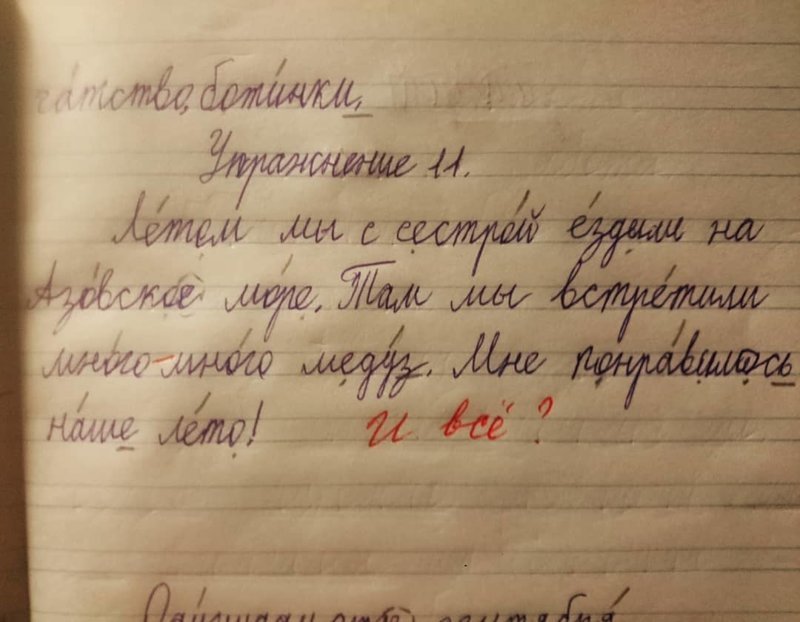 ботинки.
Упражнение 11.
Ле́том мы с сестро́й е́здили на
Азо́вское мо́ре. Там мы встре́тили
мно́го-мно́го меду́з. Мне понра́вилось
на́ше ле́то! И всё?
сентября́